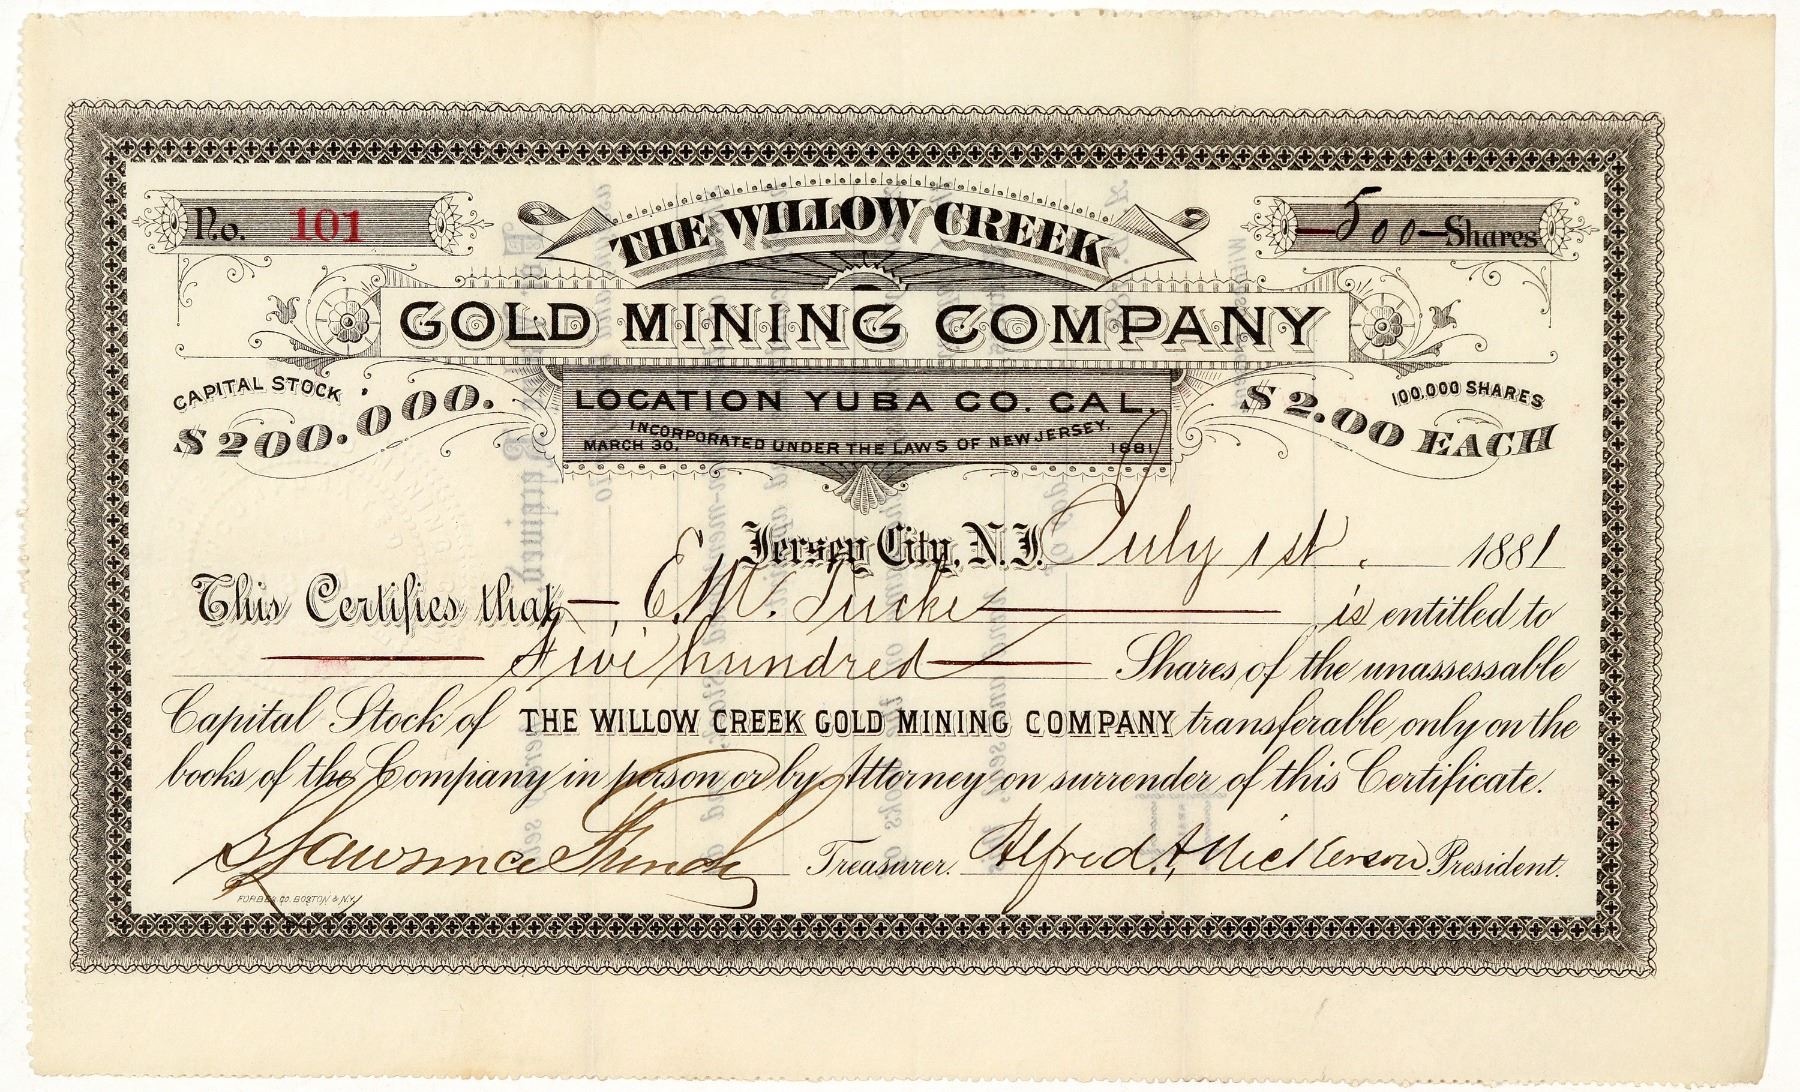 No. 101
THE WILLOW CREEK
500 Shares
GOLD MINING COMPANY
CAPITAL STOCK
$200.000.
LOCATION YUBA CO. CAL.
INCORPORATED UNDER THE LAWS OF NEW JERSEY.
MARCH 30. 1881
100,000 SHARES
$2.00 EACH
Jersey City, N.J. July 1st. 1881
This Certifies that E.M. is entitled to
Five hundred Shares of the unassessable
Capital Stock of THE WILLOW CREEK GOLD MINING COMPANY transferable only on the
books of the Company in person or by Attorney on surrender of this Certificate.
Treasurer. Alfred A. Nickerson President.
FORBES CO. BOSTON & N.Y.